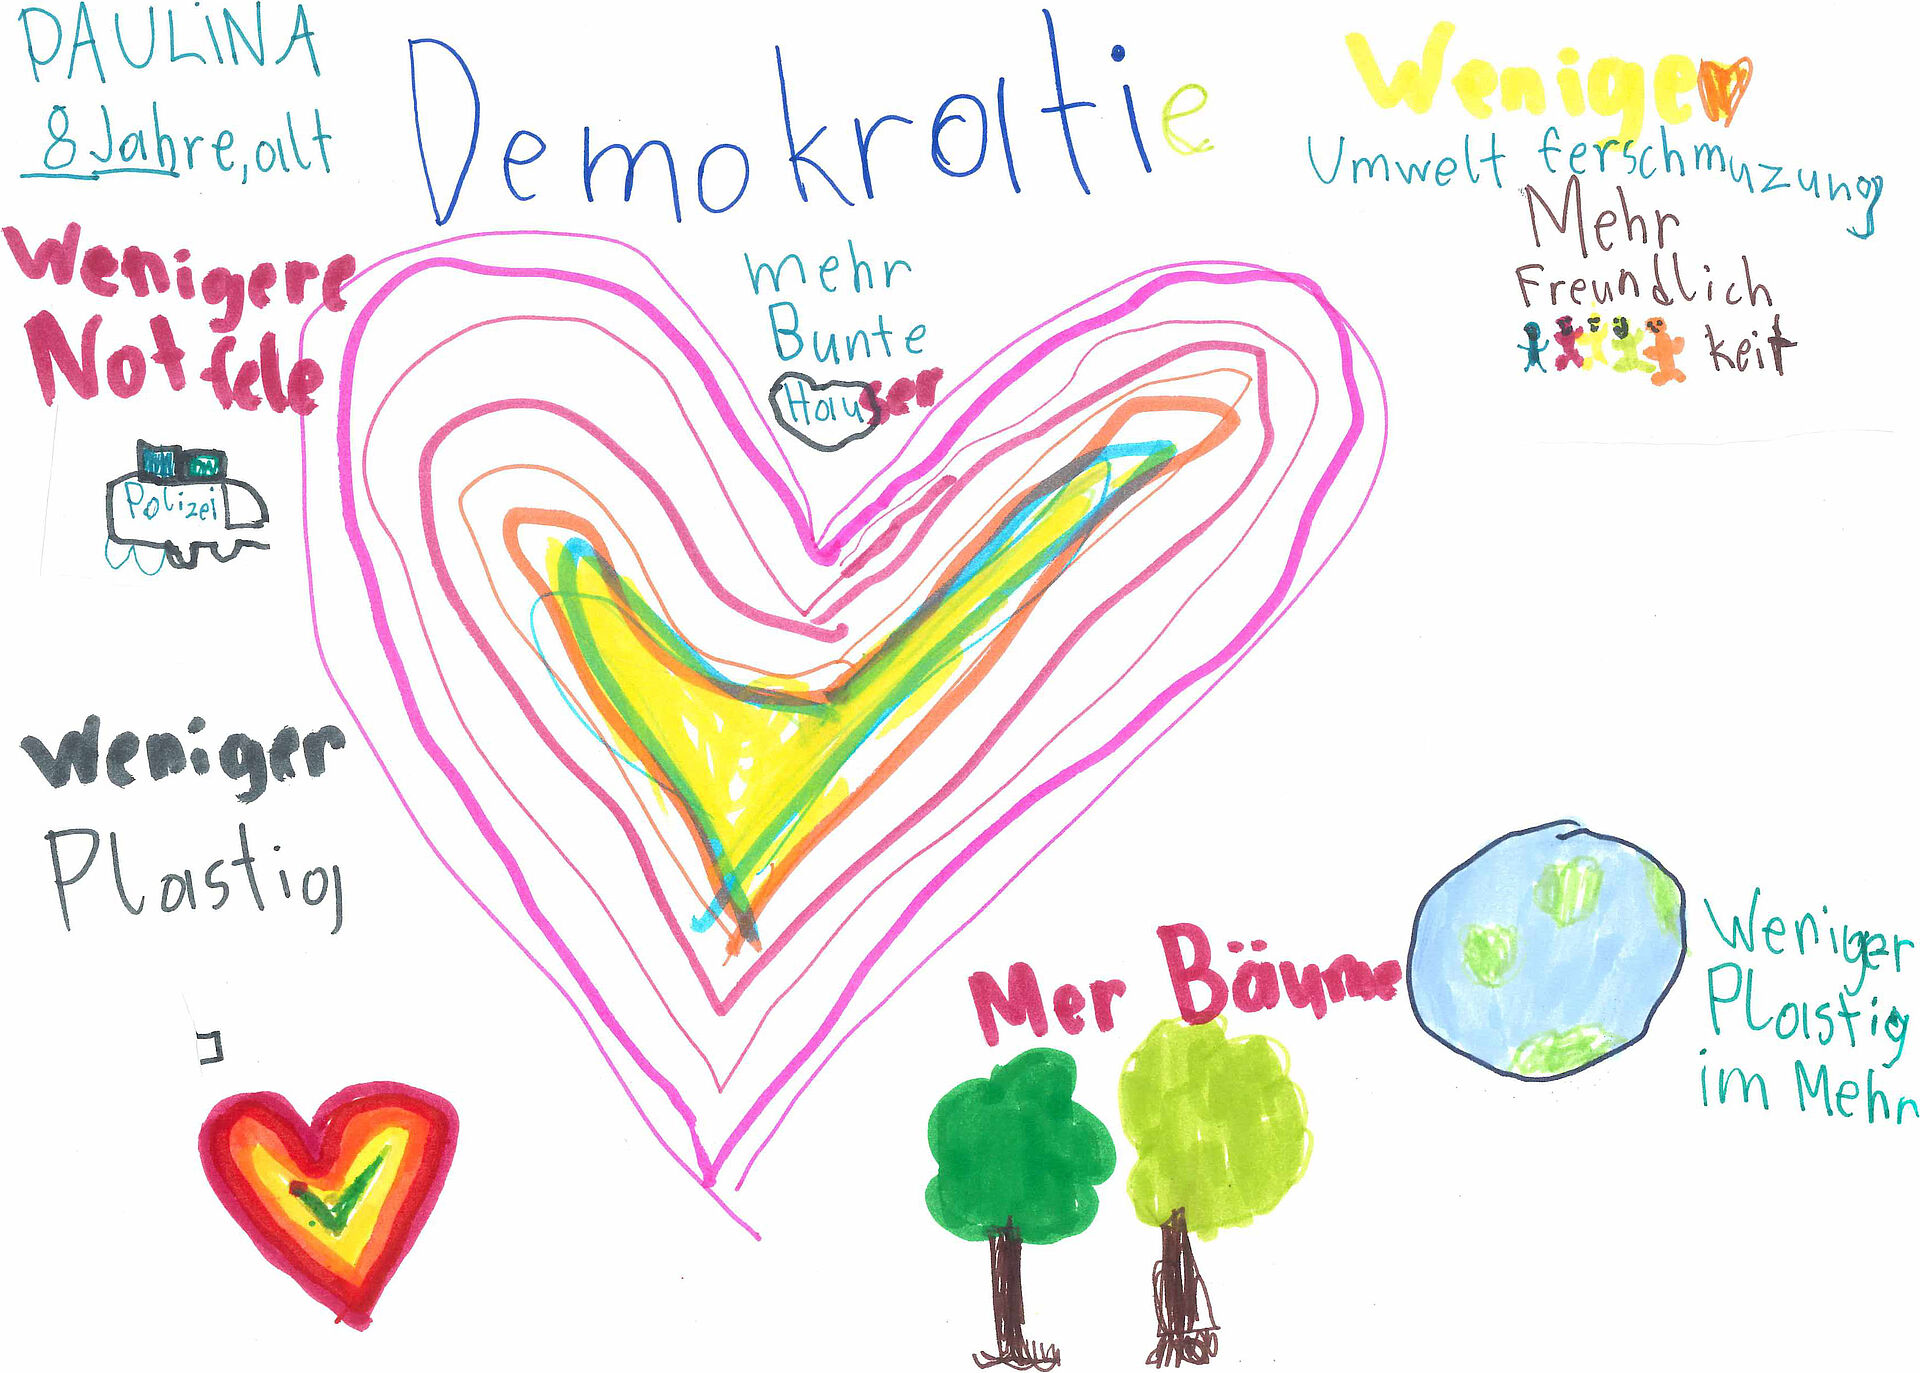 PAULiNA
8 Jahre,alt
Demokratie
Weniger
Umwelt ferschmuzung
Mehr
Freundlich
keit
Wenigere
Notfele
mehr
Bunte
Hauser
Polizei
Weniger
Plastig
Mer Bäume
Weniger
Plastig
im Mehr